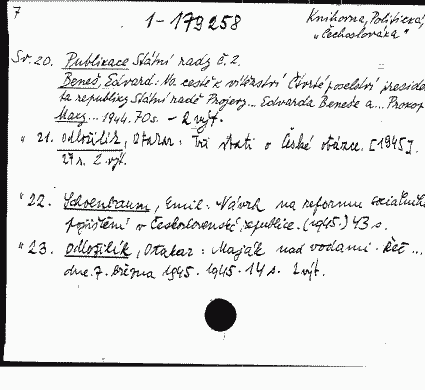 7
1-179258
Knihovna „Politická,
„Čechoslováka"
Sv. 20. Publikace Státní rady č. 2.
Beneš, Edvard: Na cestě k vítězství Čtvrté poselství presiden
ta republiky Státní radě Projevy... Edvarda Beneše a... Prokop
Maxy... 1944. 70 s. - 2 výt.
" 21. Odložilík, Otakar: Tři stati o České otázce. [1945].
27 s. 2 výt.
" 22. Schoenbaum, Emil: Návrh na reformu sociálního
pojištění v Československé republice. (1945.) 43 s.
" 23. Odložilík, Otakar: Maják nad vodami. Řeč ...
dne 7. března 1945. 1945. 14 s. 2 výt.